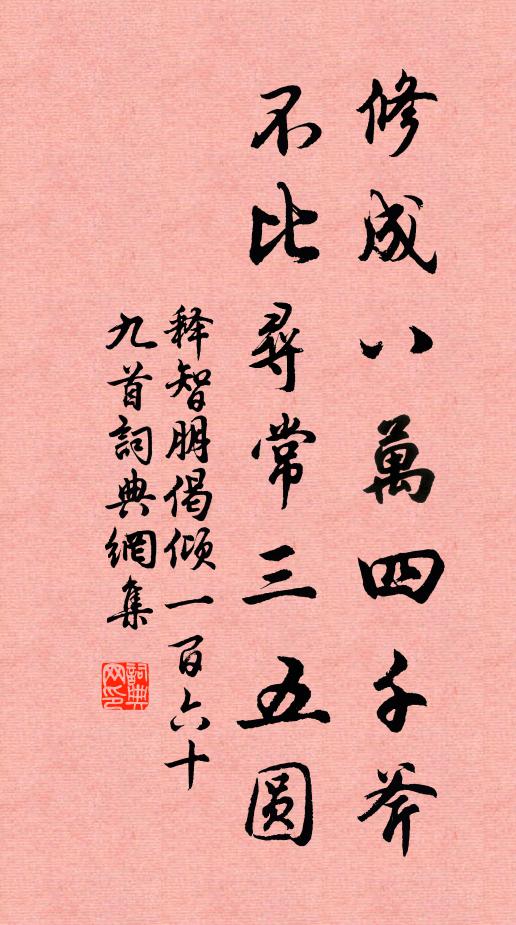 修成八萬四千斧
不比尋常三五圆
释智朋偈倾一百六十
九首詞典網集
詞典网印